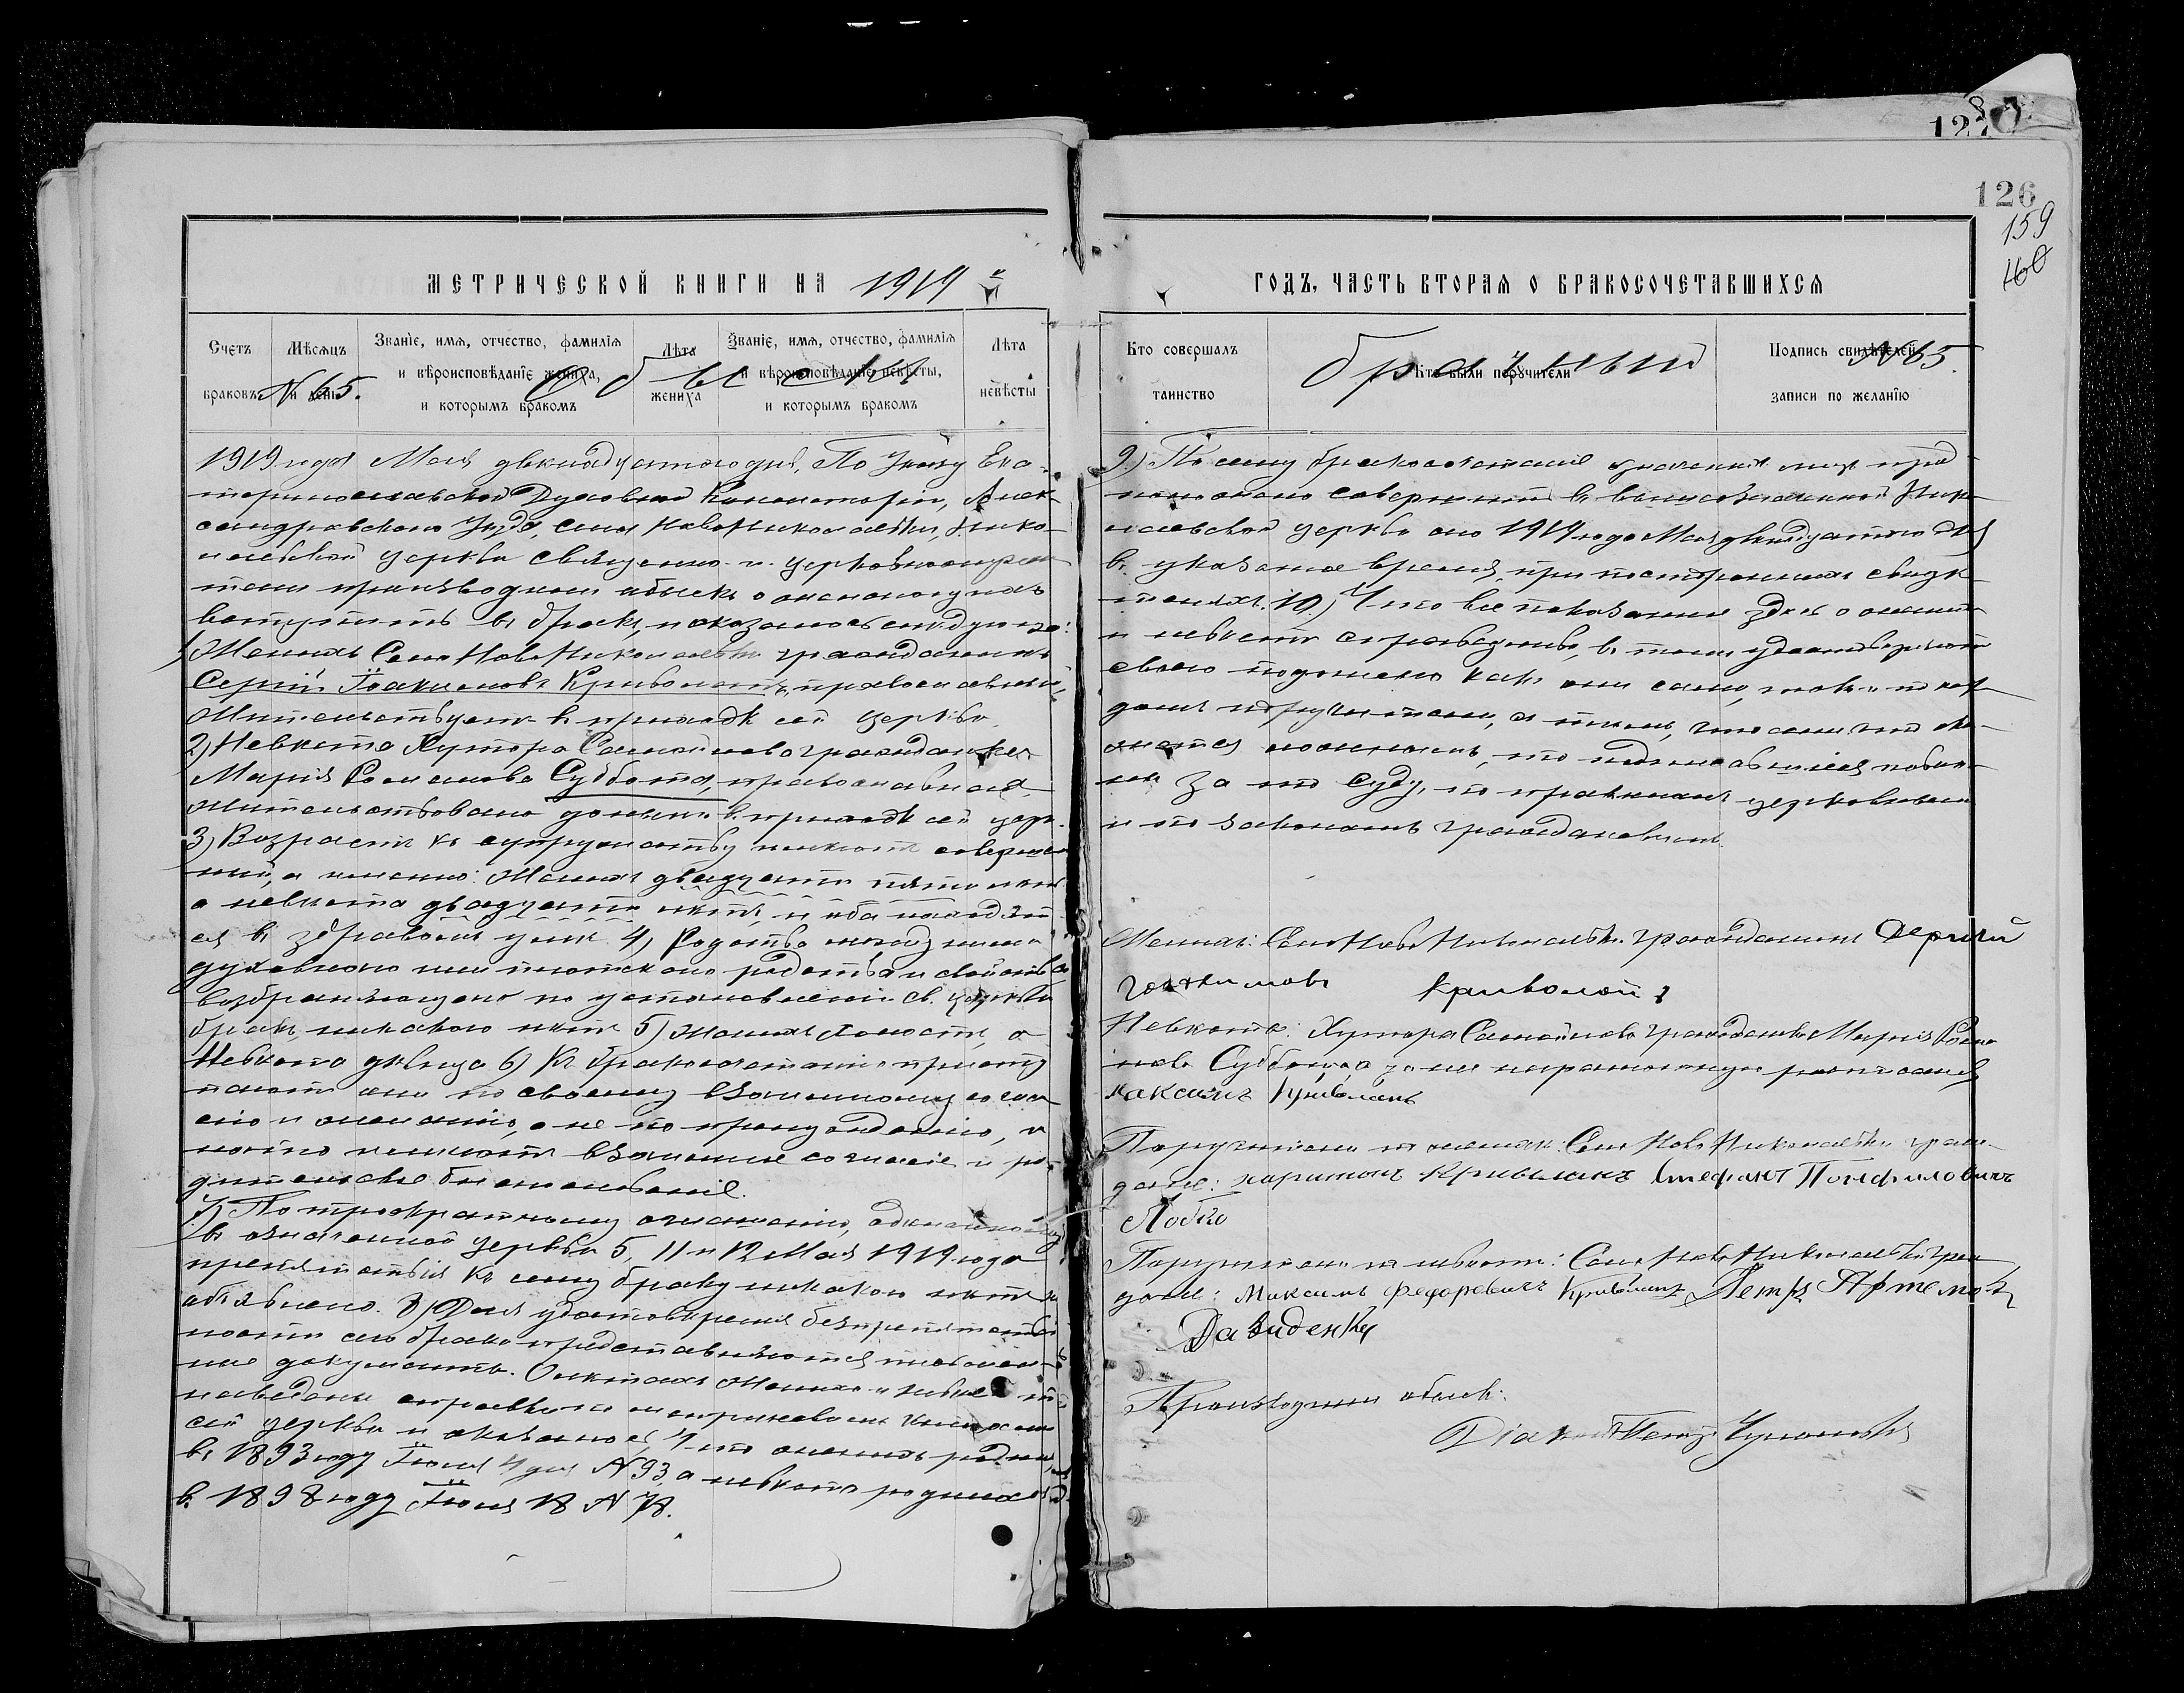 127
126
159
160
МЕТРИЧЕСКОЙ КНИГИ НА 1919
ГОДЪ, ЧАСТЬ ВТОРАЯ О БРАКОСОЧЕТАВШИХСЯ
Счетъ браковъ
Мѣсяцъ и день
Званіе, имя, отчество, фамилія и вѣроисповѣданіе жениха, и которымъ бракомъ
Лѣта жениха
Званіе, имя, отчество, фамилія и вѣроисповѣданіе невѣсты, и которымъ бракомъ
Лѣта невѣсты
Кто совершалъ таинство
Кто были поручители
Подпись свидѣтелей записи по желанію
№ 65. Обыскъ
брачный № 65.
1919 года Мая двѣнадцатого дня, По Указу Ека-
теринославской Духовной Консисторіи, Алек-
сандровскаго Уѣзда, села Ново Николаевки, Нико-
лаевской церкви священно и церковнослужи
тели производили обыскъ о желающихъ
вступить въ бракъ, и оказалось слѣдующее:
1) Женихъ Села Ново Николаевки гражданинъ
Сергій Іоакимовъ Криволапъ, православный,
Жительствуетъ въ приходѣ сей церкви.
2) Невѣста Хутора Самойлова гражданка
Марія Романова Суббота, православная,
жительствовала донынѣ въ приходѣ сей церк.
3) Возрастъ къ супружеству имѣютъ совершен
ный, а именно: Женихъ двадцати пяти лѣтъ
а невѣста двадцати лѣтъ, и оба находят
ся въ здравомъ умѣ. 4) Родства между ними
духовнаго или плотскаго родства и свойства
возбраняющаго по установленію св. церкви
бракъ, никакого нѣтъ 5) Женихъ холостъ, а
Невѣста дѣвица 6) Къ бракосочетанію присту
паютъ они по своему взаимному согла
сію и желанію, а не по принужденію, и
на то имѣютъ взаимное согласіе и ро-
дительское благословеніе.
7) По троекратному оглашенію, сдѣланному
въ означенной церкви 5, 11 и 12 Мая 1919 года
препятствія къ сему браку никакого нѣтъ
объявлено. 8) Для удостовѣренія безпрепятствен
ности сего брака представляются письмен-
ные документы. О лѣтахъ жениха и невѣсты
наведены справки по метрическимъ книгамъ
сей церкви и оказалось, что женихъ родил
въ 1893 году Іюля 4 дня № 93, а невѣста родилась
въ 1898 году Іюля 18 № 78.
9.) По сему бракосочетаніе означенныхъ лицъ пред
положено совершить въ вышеозначенной Нико-
лаевской церкви сего 1919 года Мая двѣнадцатого дня
въ указанное время, при постороннихъ свидѣ
теляхъ. 10.) Что все показанное здѣсь о женихѣ
и невѣстѣ справедливо, въ томъ удостовѣряютъ
своею подписью какъ они сами, такъ и по каж
домъ поручители, съ тѣмъ, что если что ока-
жется ложнымъ, то подписавшіеся повин-
ны за то суду, по правиламъ церковнымъ
и по законамъ гражданскимъ.
Женихъ: Села Ново Николаевки гражданинъ Сергій
Іоакимовъ Криволой
Невѣста: Хутора Самойлова гражданка Марія Рома
нова Суббота, а за нея неграмотную росписался
Максимъ Криволапъ
Поручители по женихѣ: Села Ново Николаевки граж-
дане: Харитонъ Криволапъ Стефанъ Панфиловичъ
Лобко
Поручители по невѣстѣ: Села Ново Николаевки граж
дане: Максимъ Федоровичъ Криволапъ, Петръ Артемов
Давиденко
Производили обыскъ:
Діаконъ Петръ